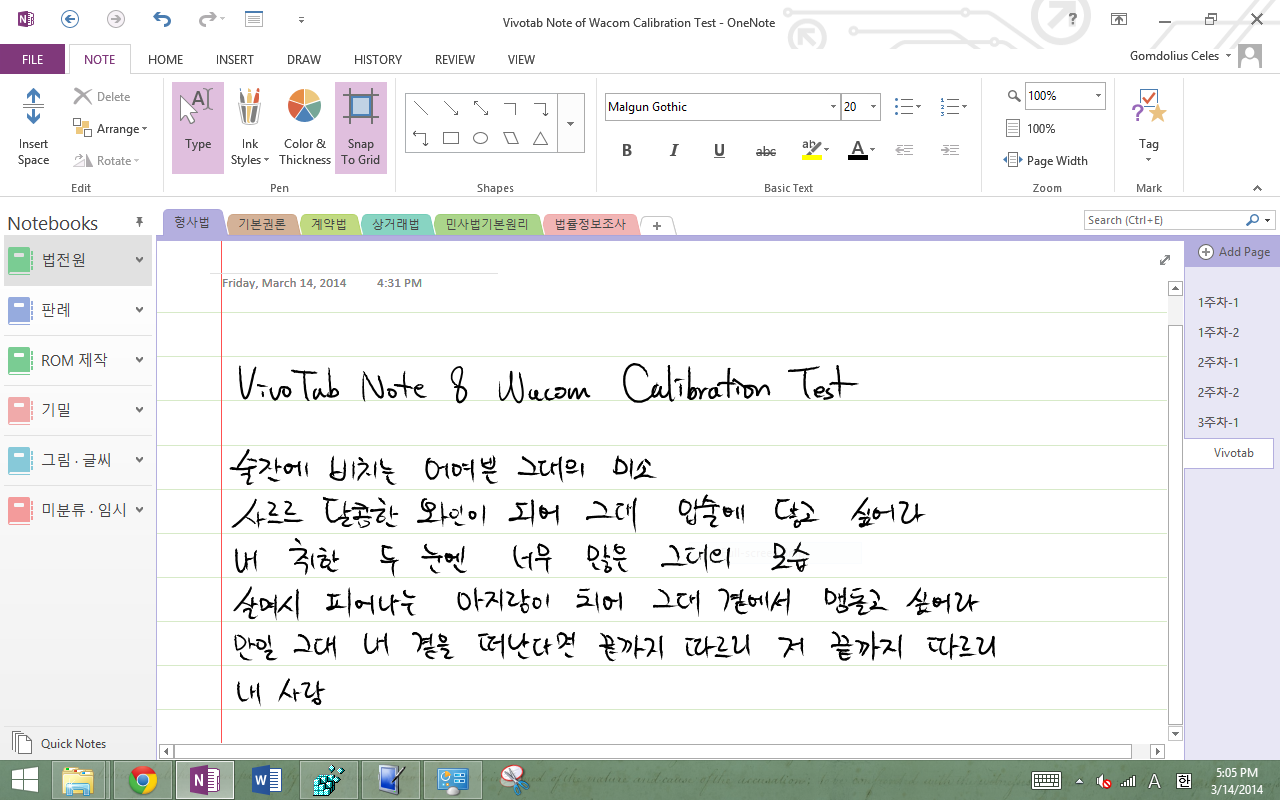 Vivotab Note of Wacom Calibration Test - OneNote
FILE NOTE HOME INSERT DRAW HISTORY REVIEW VIEW
Gomdolius Celes
Insert Space
Delete
Arrange
Rotate
Edit
Type
Ink Styles
Color & Thickness
Snap To Grid
Pen
Shapes
Malgun Gothic 20
B I U abc ab A
Basic Text
100%
100%
Page Width
Zoom
Tag
Mark
Notebooks
법전원
판례
ROM 제작
기밀
그림 · 글씨
미분류 · 임시
Quick Notes
형사법 기본권론 계약법 상거래법 민사법기본원리 법률정보조사
Search (Ctrl+E)
Add Page
1주차-1
1주차-2
2주차-1
2주차-2
3주차-1
Vivotab
Friday, March 14, 2014 4:31 PM
VivoTab Note 8 Wacom Calibration Test
술잔에 비치는 어여쁜 그대의 미소
사르르 달콤한 와인이 되어 그대 입술에 닿고 싶어라
내 취한 두 눈엔 너무 많은 그대의 모습
살며시 피어나는 아지랑이 되어 그대 곁에서 맴돌고 싶어라
만일 그대 내 곁을 떠난다면 끝까지 따르리 저 끝까지 따르리
내 사랑
A 한
5:05 PM
3/14/2014